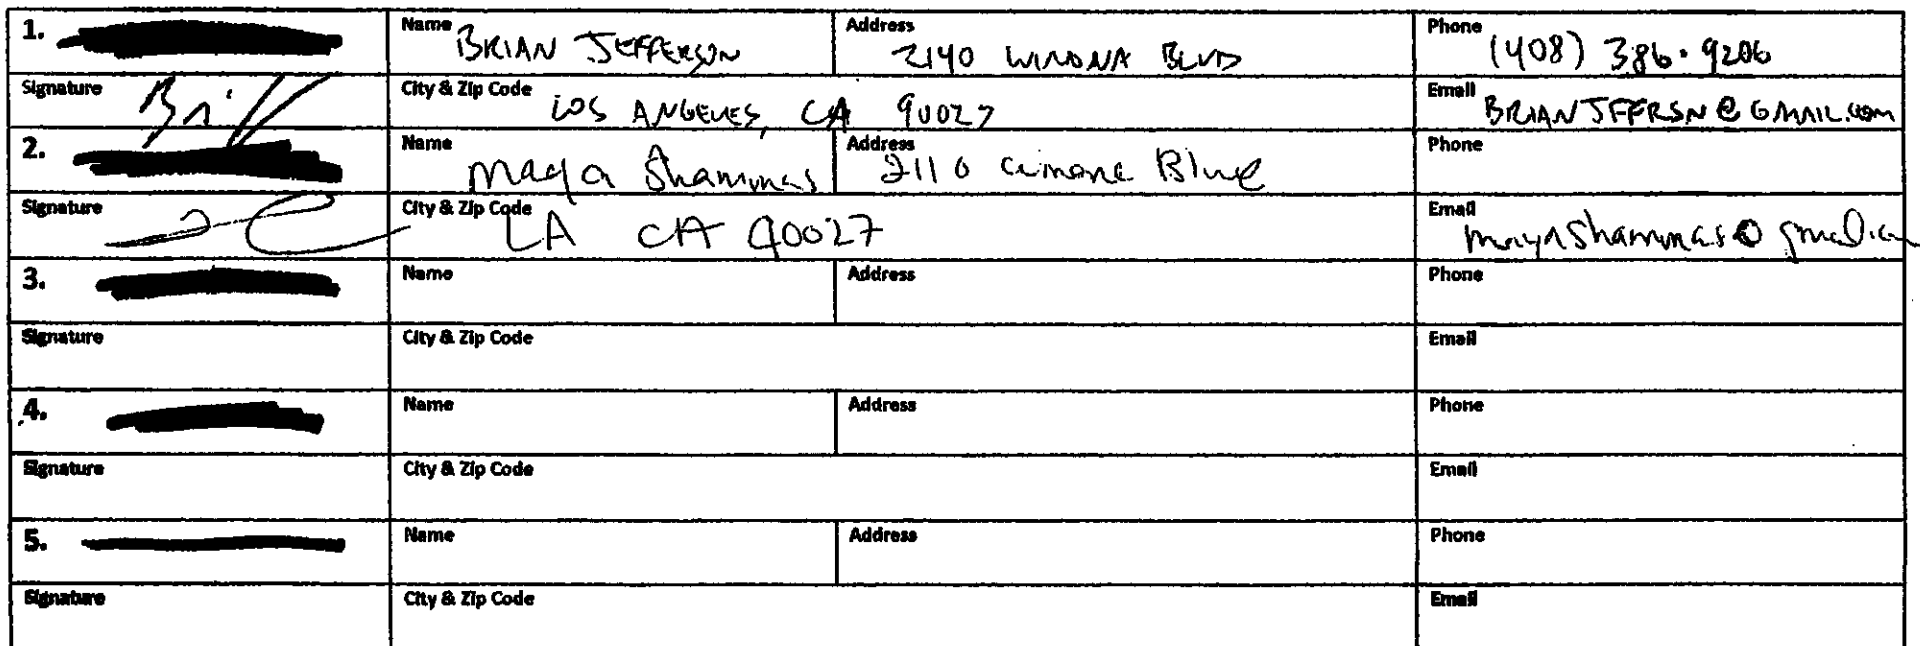 1. Name BRIAN JEFFERSON Address 2140 WINONA BLVD Phone (408) 386-9206
Signature City & Zip Code LOS ANGELES, CA 90027 Email BRIANJFFRSN@GMAIL.COM
2. Name Maya Shammas Address 2110 Phone
Signature City & Zip Code LA CA 90027 Email mayashammas@
3. Name Address Phone
Signature City & Zip Code Email
4. Name Address Phone
Signature City & Zip Code Email
5. Name Address Phone
Signature City & Zip Code Email